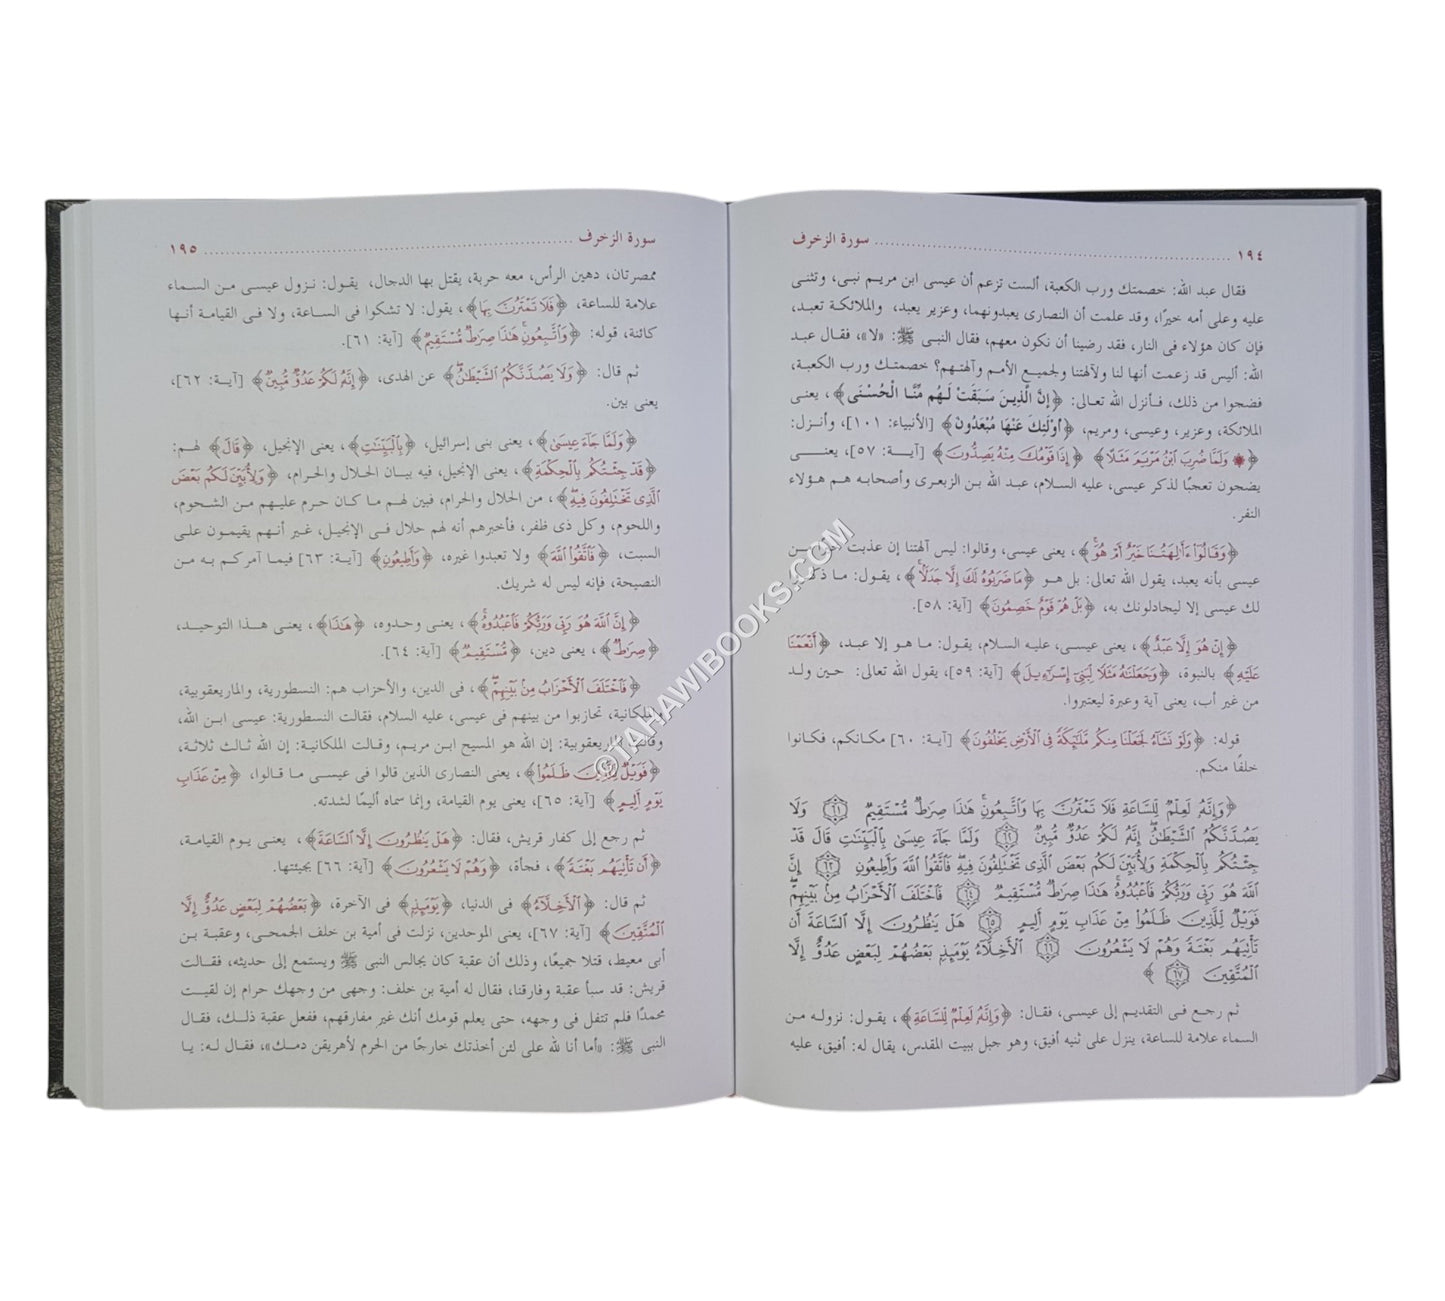 ١٩٤ سورة الزخرف
فقال عبد الله: خصمتك ورب الكعبة، ألست تزعم أن عيسى ابن مريم نبى، وتثنى
عليه وعلى أمه خيرًا، وقد علمت أن النصارى يعبدونهما، وعزير يعبد، والملائكة تعبد،
فإن كان هؤلاء فى النار، فقد رضينا أن نكون معهم، فقال النبى ﷺ: «لا»، فقال عبد
الله: أليس قد زعمت أنها لنا ولآلهتنا ولجميع الأمم وآلهتهم؟ خصمتك ورب الكعبة،
فضحوا من ذلك، فأنزل الله تعالى: ﴿إنَّ الَّذِينَ سَبَقَتْ لَهُم مِّنَّا الْحُسْنَى﴾، يعنى
الملائكة، وعزير، وعيسى، ومريم، ﴿أُوْلَئِكَ عَنْهَا مُبْعَدُونَ﴾ [الأنبياء: ١٠١]، وأنزل:
﴿۞ وَلَمَّا ضُرِبَ ابْنُ مَرْيَمَ مَثَلًا﴾ ﴿إِذَا قَوْمُكَ مِنْهُ يَصِدُّونَ﴾ [آية: ٥٧]، يعنى
يضحون تعجبًا لذكر عيسى، عليه السلام، عبد الله بن الزبعرى وأصحابه هم هؤلاء
النفر.
﴿وَقَالُوٓا۟ ءَأَٰلِهَتُنَا خَيْرٌ أَمْ هُوَ﴾، يعنى عيسى، وقالوا: ليس آلهتنا إن عذبت من
عيسى بأنه يعبد، يقول الله تعالى: بل هو ﴿مَا ضَرَبُوهُ لَكَ إِلَّا جَدَلًا﴾، يقول: ما ذكروا
لك عيسى إلا ليجادلونك به، ﴿بَلْ هُمْ قَوْمٌ خَصِمُونَ﴾ [آية: ٥٨].
﴿إِنْ هُوَ إِلَّا عَبْدٌ﴾، يعنى عيسى، عليه السلام، يقول: ما هو إلا عبد، ﴿أَنْعَمْنَا
عَلَيْهِ﴾ بالنبوة، ﴿وَجَعَلْنَٰهُ مَثَلًا لِّبَنِىٓ إِسْرَٰٓءِيلَ﴾ [آية: ٥٩]، يقول الله تعالى: حين ولد
من غير أب، يعنى آية وعبرة ليعتبروا.
قوله: ﴿وَلَوْ نَشَآءُ لَجَعَلْنَا مِنكُم مَّلَٰٓئِكَةً فِى الْأَرْضِ يَخْلُفُونَ﴾ [آية: ٦٠] مكانكم، فكانوا
خلفًا منكم.
﴿وَإِنَّهُۥ لَعِلْمٌ لِّلسَّاعَةِ فَلَا تَمْتَرُنَّ بِهَا وَٱتَّبِعُونِ ۚ هَٰذَا صِرَٰطٌ مُّسْتَقِيمٌ ٦١ وَلَا
يَصُدَّنَّكُمُ الشَّيْطَٰنُ ۖ إِنَّهُۥ لَكُمْ عَدُوٌّ مُّبِينٌ ٦٢ وَلَمَّا جَآءَ عِيسَىٰ بِالْبَيِّنَٰتِ قَالَ قَدْ
جِئْتُكُم بِالْحِكْمَةِ وَلِأُبَيِّنَ لَكُم بَعْضَ الَّذِى تَخْتَلِفُونَ فِيهِ ۖ فَاتَّقُوا۟ اللَّهَ وَأَطِيعُونِ ٦٣ إِنَّ
اللَّهَ هُوَ رَبِّى وَرَبُّكُمْ فَاعْبُدُوهُ ۚ هَٰذَا صِرَٰطٌ مُّسْتَقِيمٌ ٦٤ فَاخْتَلَفَ الْأَحْزَابُ مِنۢ بَيْنِهِمْ ۖ
فَوَيْلٌ لِّلَّذِينَ ظَلَمُوا۟ مِنْ عَذَابِ يَوْمٍ أَلِيمٍ ٦٥ هَلْ يَنظُرُونَ إِلَّا السَّاعَةَ أَن
تَأْتِيَهُم بَغْتَةً وَهُمْ لَا يَشْعُرُونَ ٦٦ الْأَخِلَّآءُ يَوْمَئِذٍۭ بَعْضُهُمْ لِبَعْضٍ عَدُوٌّ إِلَّا
الْمُتَّقِينَ ٦٧ ﴾
ثم رجع فى التقديم إلى عيسى، فقال: ﴿وَإِنَّهُۥ لَعِلْمٌ لِّلسَّاعَةِ﴾، يقول: نزوله من
السماء علامة للساعة، ينزل على ثنيه أفيق، وهو جبل ببيت المقدس، يقال له: أفيق، عليه
سورة الزخرف ١٩٥
ممصرتان، دهين الرأس، معه حربة، يقتل بها الدجال، يقول: نزول عيسى من السماء
علامة للساعة، ﴿فَلَا تَمْتَرُنَّ بِهَا﴾، يقول: لا تشكوا فى الساعة، ولا فى القيامة أنها
كائنة، قوله: ﴿وَاتَّبِعُونِ ۚ هَٰذَا صِرَٰطٌ مُّسْتَقِيمٌ﴾ [آية: ٦١].
ثم قال: ﴿وَلَا يَصُدَّنَّكُمُ الشَّيْطَٰنُ ۖ﴾ عن الهدى، ﴿إِنَّهُۥ لَكُمْ عَدُوٌّ مُّبِينٌ﴾ [آية: ٦٢]،
يعنى بين.
﴿وَلَمَّا جَآءَ عِيسَىٰ﴾، يعنى بنى إسرائيل، ﴿بِالْبَيِّنَٰتِ﴾، يعنى الإنجيل، ﴿قَالَ﴾ لهم:
﴿قَدْ جِئْتُكُم بِالْحِكْمَةِ﴾، يعنى الإنجيل، فيه بيان الحلال والحرام، ﴿وَلِأُبَيِّنَ لَكُم بَعْضَ
الَّذِى تَخْتَلِفُونَ فِيهِ ۖ﴾، من الحلال والحرام، فبين لهم ما كان حرم عليهم من الشحوم،
واللحوم، وكل ذى ظفر، فأخبرهم أنه لهم حلال فى الإنجيل، غير أنهم يقيمون على
السبت، ﴿فَاتَّقُوا۟ اللَّهَ﴾ ولا تعبدوا غيره، ﴿وَأَطِيعُونِ﴾ [آية: ٦٣] فيما آمركم به من
النصيحة، فإنه ليس له شريك.
﴿إِنَّ اللَّهَ هُوَ رَبِّى وَرَبُّكُمْ فَاعْبُدُوهُ ۚ﴾، يعنى وحدوه، ﴿هَٰذَا﴾، يعنى هذا التوحيد،
﴿صِرَٰطٌ﴾، يعنى دين، ﴿مُّسْتَقِيمٌ﴾ [آية: ٦٤].
﴿فَاخْتَلَفَ الْأَحْزَابُ مِنۢ بَيْنِهِمْ ۖ﴾، فى الدين، والأحزاب هم: النسطورية، والماريعقوبية،
والملكانية، تحازبوا من بينهم فى عيسى، عليه السلام، فقالت النسطورية: عيسى ابن الله،
وقالت الماريعقوبية: إن الله هو المسيح ابن مريم، وقالت الملكانية: إن الله ثالث ثلاثة،
﴿فَوَيْلٌ لِّلَّذِينَ ظَلَمُوا۟﴾، يعنى النصارى الذين قالوا فى عيسى ما قالوا، ﴿مِنْ عَذَابِ
يَوْمٍ أَلِيمٍ﴾ [آية: ٦٥]، يعنى يوم القيامة، وإنما سماه أليمًا لشدته.
ثم رجع إلى كفار قريش، فقال: ﴿هَلْ يَنظُرُونَ إِلَّا السَّاعَةَ﴾، يعنى يوم القيامة،
﴿أَن تَأْتِيَهُم بَغْتَةً﴾، فجأة، ﴿وَهُمْ لَا يَشْعُرُونَ﴾ [آية: ٦٦] بجيئتها.
ثم قال: ﴿الْأَخِلَّآءُ﴾ فى الدنيا، ﴿يَوْمَئِذٍۭ﴾ فى الآخرة، ﴿بَعْضُهُمْ لِبَعْضٍ عَدُوٌّ إِلَّا
الْمُتَّقِينَ﴾ [آية: ٦٧]، يعنى الموحدين، نزلت فى أمية بن خلف الجمحى، وعقبة بن
أبى معيط، قتلا جميعًا، وذلك أن عقبة كان يجالس النبى ﷺ ويستمع إلى حديثه، فقالت
قريش: قد سبأ عقبة وفارقنا، فقال له أمية بن خلف: وجهى من وجهك حرام إن لقيت
محمدًا فلم تتفل فى وجهه، حتى يعلم قومك أنك غير مفارقهم، ففعل عقبة ذلك، فقال
النبى ﷺ: «أما أنا لله على لئن أخذتك خارجًا من الحرم لأهريقن دمك»، فقال له: يا
©TAHAWIBOOKS.COM